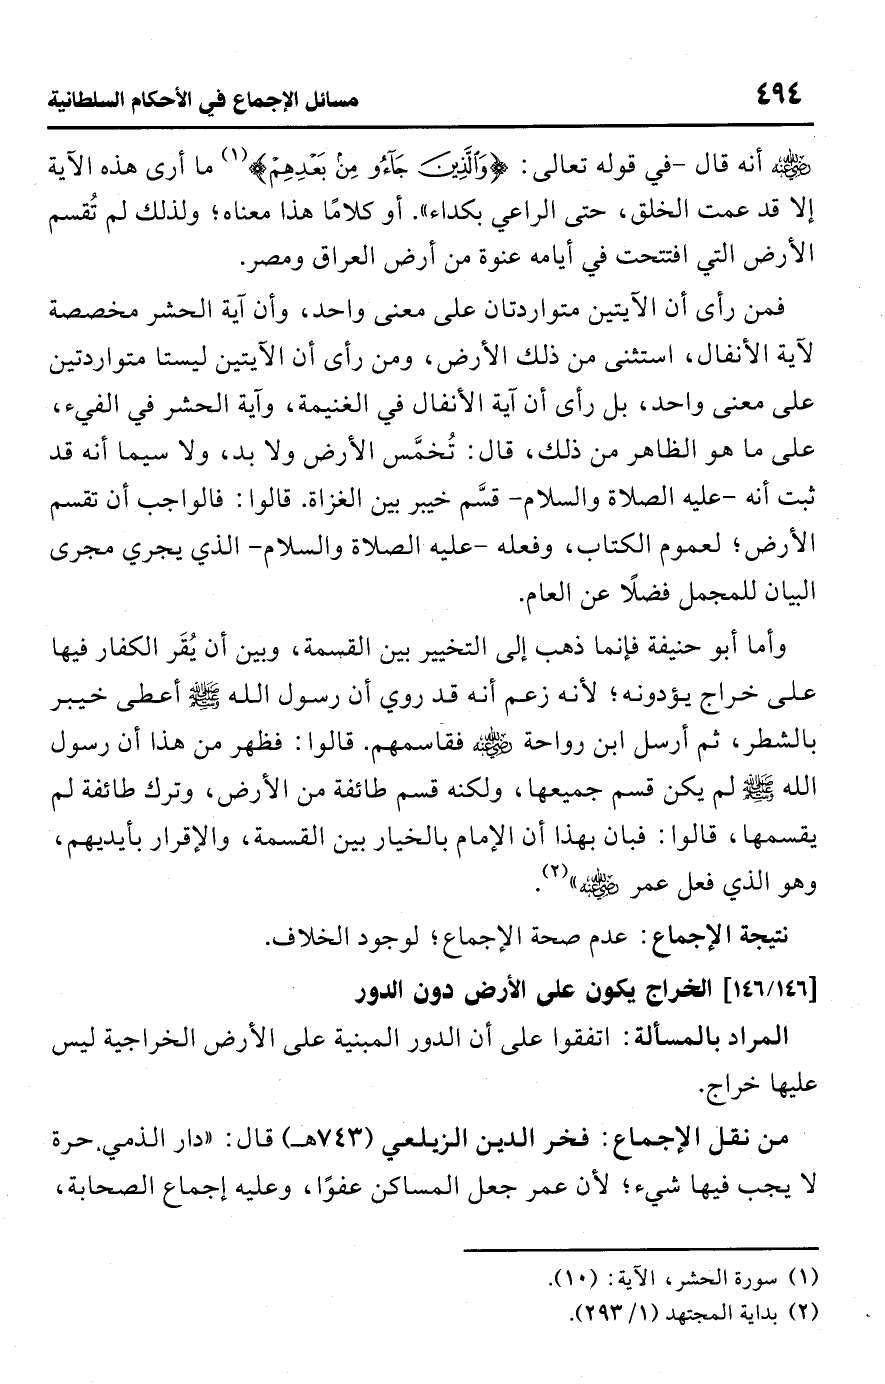 ٤٩٤ مسائل الإجماع في الأحكام السلطانية
﵁ أنه قال -في قوله تعالى: ﴿وَٱلَّذِينَ جَآءُو مِنۢ بَعْدِهِمْ﴾(١) ما أرى هذه الآية
إلا قد عمت الخلق، حتى الراعي بكداء». أو كلامًا هذا معناه؛ ولذلك لم تُقسم
الأرض التي افتتحت في أيامه عنوة من أرض العراق ومصر.
فمن رأى أن الآيتين متواردتان على معنى واحد، وأن آية الحشر مخصصة
لآية الأنفال، استثنى من ذلك الأرض، ومن رأى أن الآيتين ليستا متواردتين
على معنى واحد، بل رأى أن آية الأنفال في الغنيمة، وآية الحشر في الفيء،
على ما هو الظاهر من ذلك، قال: تُخمَّس الأرض ولا بد، ولا سيما أنه قد
ثبت أنه -عليه الصلاة والسلام- قسَّم خيبر بين الغزاة. قالوا: فالواجب أن تقسم
الأرض؛ لعموم الكتاب، وفعله -عليه الصلاة والسلام- الذي يجري مجرى
البيان للمجمل فضلًا عن العام.
وأما أبو حنيفة فإنما ذهب إلى التخيير بين القسمة، وبين أن يُقَر الكفار فيها
على خراج يؤدونه؛ لأنه زعم أنه قد روي أن رسول الله ﷺ أعطى خيبر
بالشطر، ثم أرسل ابن رواحة ﵁ فقاسمهم. قالوا: فظهر من هذا أن رسول
الله ﷺ لم يكن قسم جميعها، ولكنه قسم طائفة من الأرض، وترك طائفة لم
يقسمها، قالوا: فبان بهذا أن الإمام بالخيار بين القسمة، والإقرار بأيديهم،
وهو الذي فعل عمر ﵁»(٢).
نتيجة الإجماع: عدم صحة الإجماع؛ لوجود الخلاف.
[١٤٦/١٤٦] الخراج يكون على الأرض دون الدور
المراد بالمسألة: اتفقوا على أن الدور المبنية على الأرض الخراجية ليس
عليها خراج.
من نقل الإجماع: فخر الدين الزيلعي (٧٤٣هـ) قال: «دار الذمي حرة
لا يجب فيها شيء؛ لأن عمر جعل المساكن عفوًا، وعليه إجماع الصحابة،
(١) سورة الحشر، الآية: (١٠).
(٢) بداية المجتهد (١/ ٢٩٣).